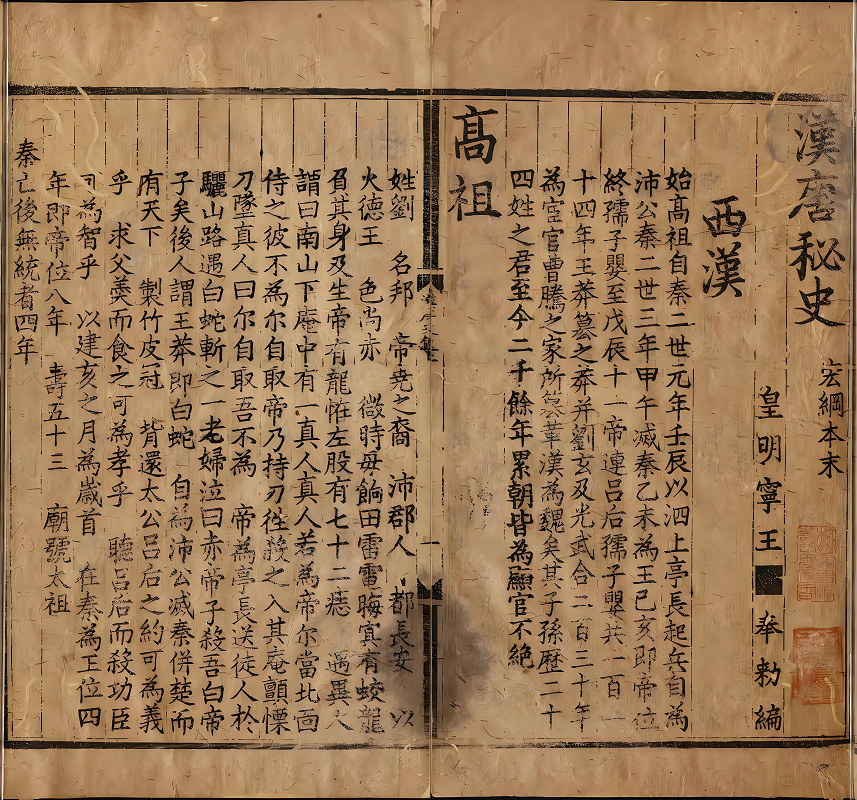 漢唐秘史
宏綱本末
皇明寧王
奉勑編
西漢
始高祖自秦二世元年壬辰以泗上亭長起兵自為
沛公秦二世三年甲午滅秦乙未為王己亥即帝位
終孺子嬰至戊辰十一帝連呂后孺子嬰共一百一
十四年王莽簒之莽并劉玄及光武合二百三十年
為宦官曹騰之家所簒革漢為魏矣其子孫歷二十
四姓之君至今二千餘年累朝皆為顯官不絕
高祖
姓劉 名邦 帝堯之裔 沛郡人 都長安 以
火德王 色尚赤 微時母餉田雷電晦冥有蛟龍
負其身及生帝有龍恠左股有七十二痣 遇異人
謂曰南山下庵中有一真人真人若為帝尔當北面
侍之彼不為尔自取帝乃持刃徃殺之入其庵顫慄
刀墜真人曰尔自取吾不為 帝為亭長送徒人於
驪山路遇白蛇斬之一老婦泣曰赤帝子殺吾白帝
子矣後人謂王莽即白蛇 自為沛公滅秦併楚而
有天下 製竹皮冠 背還太公呂后之約可為義
乎 求父羮而食之可為孝乎 聽呂后而殺功臣
可為智乎 以建亥之月為歲首 在秦為王位四
年即帝位八年 壽五十三 廟號太祖
秦亡後無統者四年